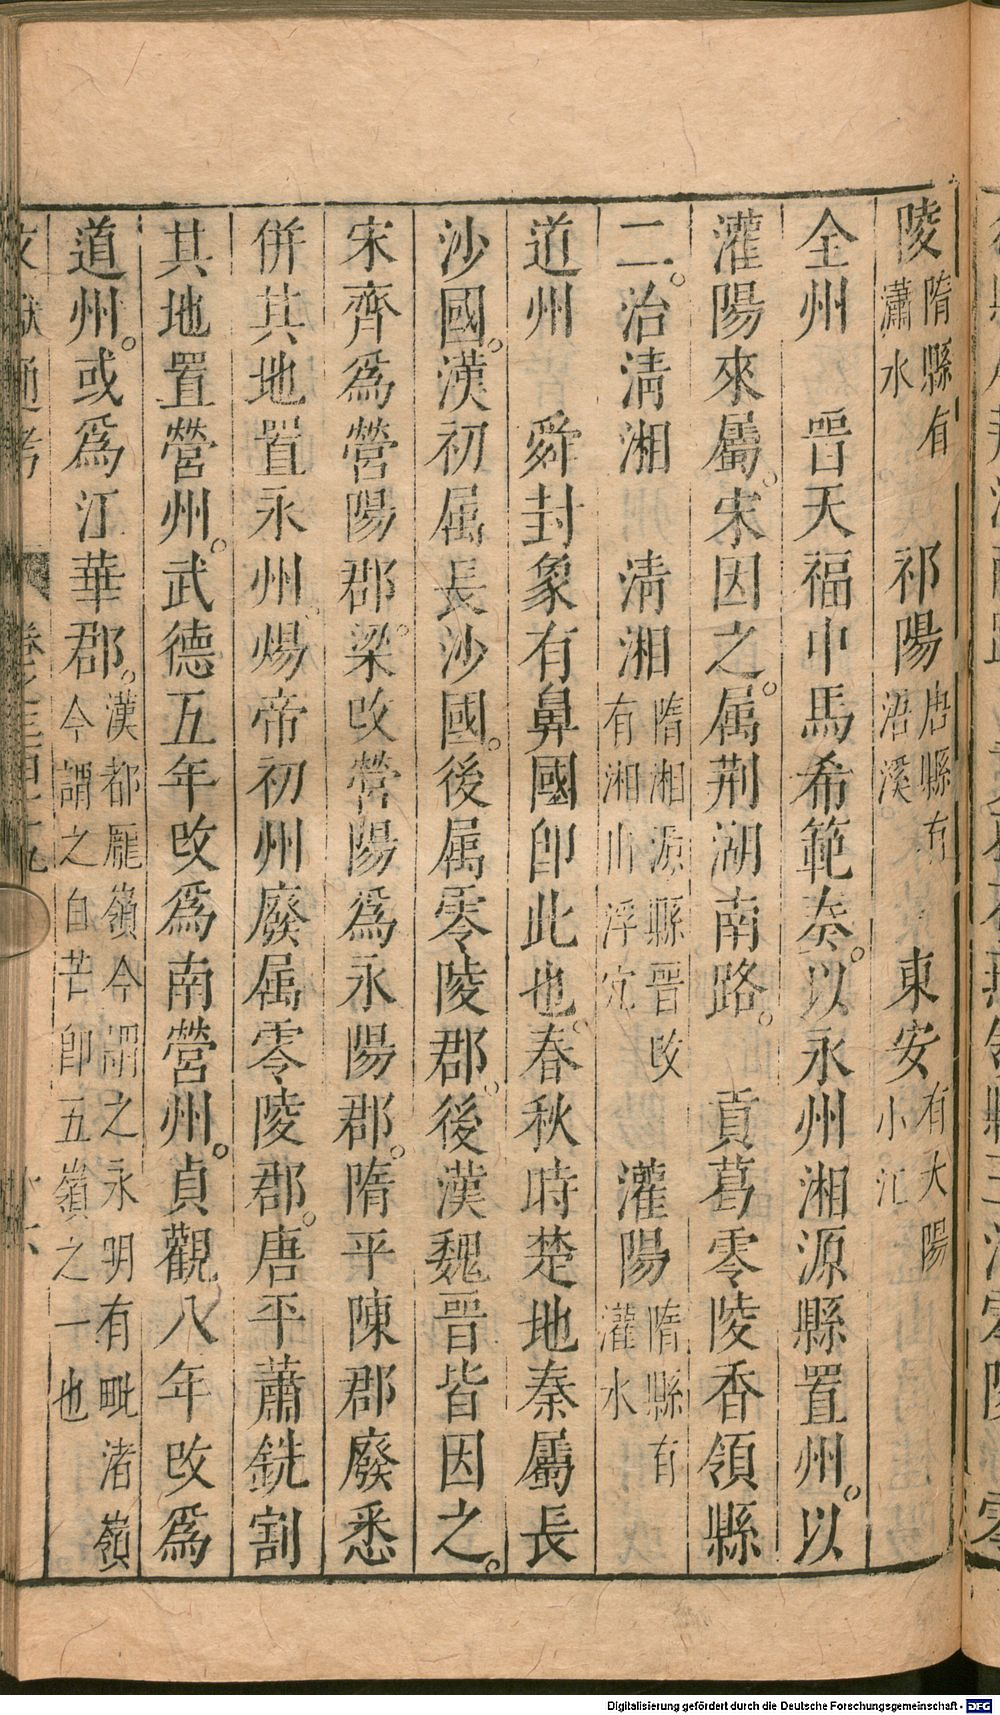 陵隋縣有瀟水 祁陽唐縣有浯溪 東安有大陽小汇
全州 晋天福中馬希範奏。以永州湘源縣置州。以
灌陽來屬。宋因之。属荆湖南路。 貢葛零陵香領縣
二。治清湘 清湘隋湘源縣晋改有湘山浮宂 灌陽隋縣有灌水
道州 舜封象有鼻國卽此也。春秋時楚地秦屬長
沙國。漢初属長沙國。後属零陵郡。後漢魏晋皆因之。
宋齊爲營陽郡。梁改營陽爲永陽郡。隋平陳郡廢悉
併其地置永州。煬帝初州廢属零陵郡。唐平蕭銑割
其地置營州。武德五年改爲南營州。貞觀八年改爲
道州。或爲江華郡。漢都龎嶺今謂之永明有毗渚嶺今謂之自芒卽五嶺之一也
文獻通考
Digitalisierung gefördert durch die Deutsche Forschungsgemeinschaft - DFG